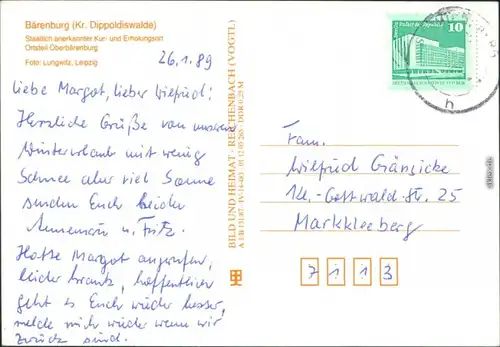 Bärenburg (Kr. Dippoldiswalde)
Staatlich anerkannter Kur- und Erholungsort
Ortsteil Oberbärenburg
Foto: Lungwitz, Leipzig
26.1.89
Liebe Margot, lieber Wilfried!
Herzliche Grüße von unserem
Winterurlaub mit wenig
Schnee aber viel Sonne
senden Euch beider
Annemarie u. Fritz.
Hatte Margot angerufen,
leider krank, hoffentlich
geht es Euch wieder besser,
melde mich wieder wenn wir
zurück sind.
BILD UND HEIMAT · REICHENBACH (VOGTL)
Palast der Republik
10
h
Fam.
Wilfried Gänzicke
Kl.-Gottwald-Str. 25
Markkleeberg
7113